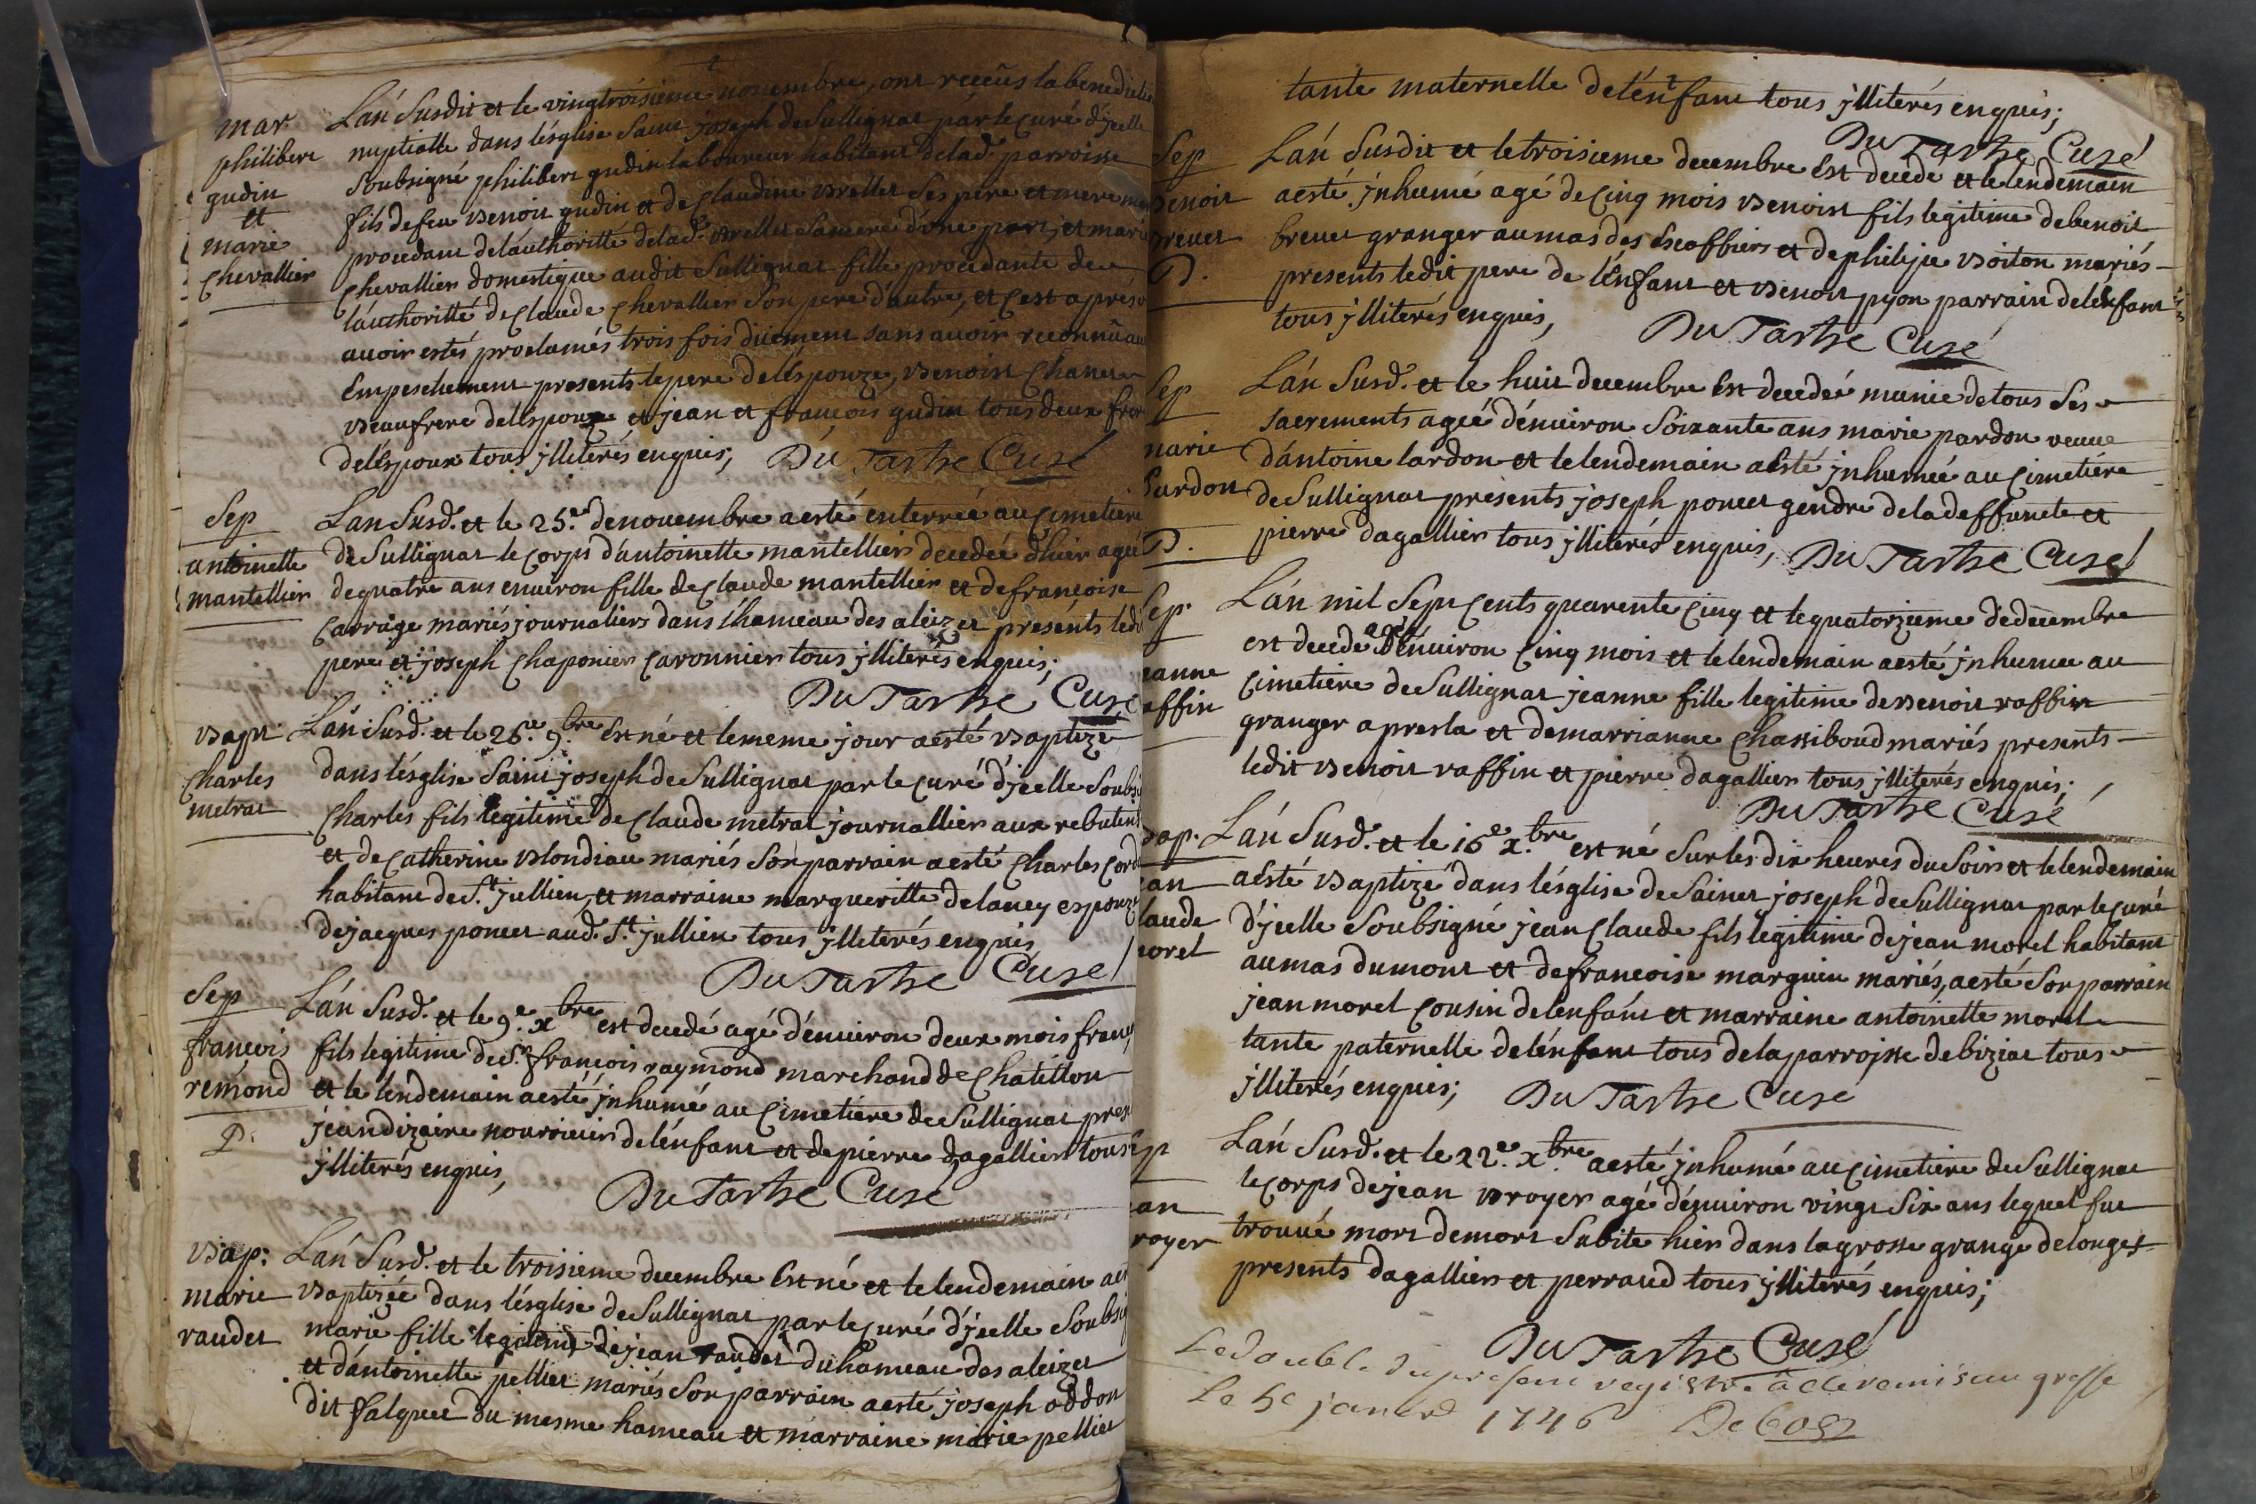 mar
philibert
gudin
et
marie
chevallier
Lán Susdit et le vingtroisieme nouembre, ont receûs la benedicti
nuptialle dans lésglise Saint joseph de Sullignat par le curé d'jcelle
Soubsigné philibert gudin laboureur habitant de lad. parroisse
fils de feu Benoit gudin et de Claudine
procedant de láuthoritté de lad. Sa mere d'une part, et mari
chevallier domestique audit Sullignat fille procedante de
láuthoritté de Claude chevallier Son pere d'autre, et c'est aprés
auoir estés proclamés trois fois düement sans auoir reconnû au
Empeschement presents le pere de lésponze, Benoist
Beaufrere de lesponze et jean et francois gudin tous deux frer
de lésponx tous jlliterés enquis; Du Tartre Curé
Sep
antoinette
mantellier
Lan Susd. et le 25.e de nouembre a esté enterrée au Cimetiere
de Sullignat le corps d'antoinette mantellier decedée d'hier ageé
de quatre ans enuiron fille de Claude mantellier et de francoise
Carrage mariés journaliers dans l'hameau des aleizet présents led
pere et joseph chaponier Caronnier tous jlliterés enquis;
Du Tartre Curé
Bapt
Charles
metrat
Lán Susd. et le 26.e 9.bre Est né et le meme jour a esté Baptizé
dans lésglise Saint joseph de Sullignat par le curé d'jcelle Soubsi
Charles fils legitime de Claude metrat journallier aux rebutin
et de Catherine Blondiau mariés Son parrain a esté Charles Cord
habitant de S.t jullien, et marraine margueritte delaney esponze
de jacques poncet aud. S.t jullien tous jlliterés enquis
Du Tartre Curé
Sep
francois
remond
P.
Lán Susd. et le 9.e x bre est decedé agé d'enuiron deux mois franc
fils legitime de S.r francois raymond marchand de Chatillon
et le lendemain a esté jnhumé au Cimetiere de Sullignat pres
jean dizaire nourricier de lénfant et de pierre dagallier tous
jlliterés enquis,
Du Tartre Curé
Bap:
marie
raudet
Lán Susd. et le troisieme decembre Est né et le lendemain a es
Baptizée dans lésglise de Sullignat par le curé d'jcelle Soubsi
marie fille legitime de jean raudet du hameau des aleizet
et dántoinette pellier mariés Son parrain a esté joseph oddon
dit falquet du mesme hameau et marraine marie pellier
tante maternelle de lénfant tous jlliterés enquis;
Du Tartre Curé
Sep
Benoit
Breuet
P.
Lán Susdit et le troisieme decembre Est decedé et le lendemain
a esté jnhumé agé de Cinq mois Benoist fils legitime de benoit
breuet granger au mas des Escoffiers et de philipie Boiton mariés
presents ledit pere de lénfant et Benoit pyon parrain de lénfant
tous jlliterés enquis, Du Tartre Curé
Sep
marie
Pardon
P.
Lán Susd. et le huit decembre Est decedeé munie de tous Ses
sacrements ageé dénuiron Soixante ans marie pardon veuue
dántoine lardon et le lendemain a Esté jnhumeé au Cimetiére
de Sullignat présents joseph poncet gendre de la deffuncte et
pierre dagallier tous jlliterés enquis, Du Tartre Curé
Sep.
eanne
affin
Lán mil Sept Cents quarente Cinq et le quatorzieme de decembre
est decede agé dénuiron Cinq mois et le lendemain a esté jnhumee au
Cimetiere de Sullignat jeanne fille legitime de Benoit raffin
granger a presla et de marrianne Chassiboud mariés presents
ledit Benoit raffin et pierre dagallier tous jlliterés enquis;
Du Tartre Curé
Bap.
ean
laude
morel
Lán Susd. et le 16.e x.bre est né Sur les dix heures du Soir et le lendemain
a ésté Baptizé dans lésglise de Sainct joseph de Sullignat par le curé
d'jcelle Soubsigné jean Claude fils legitime de jean morel habitant
au mas dumont et de francoise marguin mariés, a esté Son parrain
jean morel Cousin de lenfánt et marraine antoinette morel
tante paternelle de lénfant tous de la parroisse de biziat tous
jlliterés enquis; Du Tartre Curé
ep
ean
royer
Lán Susd. et le 22.e x.bre a esté jnhumé au Cimetiere de Sullignat
le corps de jean Broyer agé dénuiron vingt Six ans lequel fut
trouué mort de mort Subite hier dans la grosse grange de longes
presents dagallier et perraud tous jlliterés enquis;
Du Tartre Curé
Le double du present registre a éte remis au greffe
le 5e janvier 1746